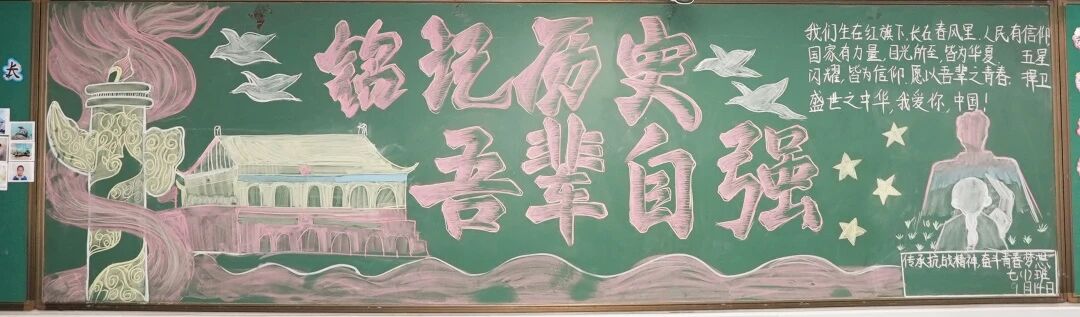 长
铭记历史
吾辈自强
我们生在红旗下,长在春风里,人民有信仰
国家有力量,目光所至,皆为华夏,五星
闪耀,皆为信仰.愿以吾辈之青春 捍卫
盛世之中华,我爱你,中国!
传承抗战精神,奋斗青春梦想
七(1)班
9月14日